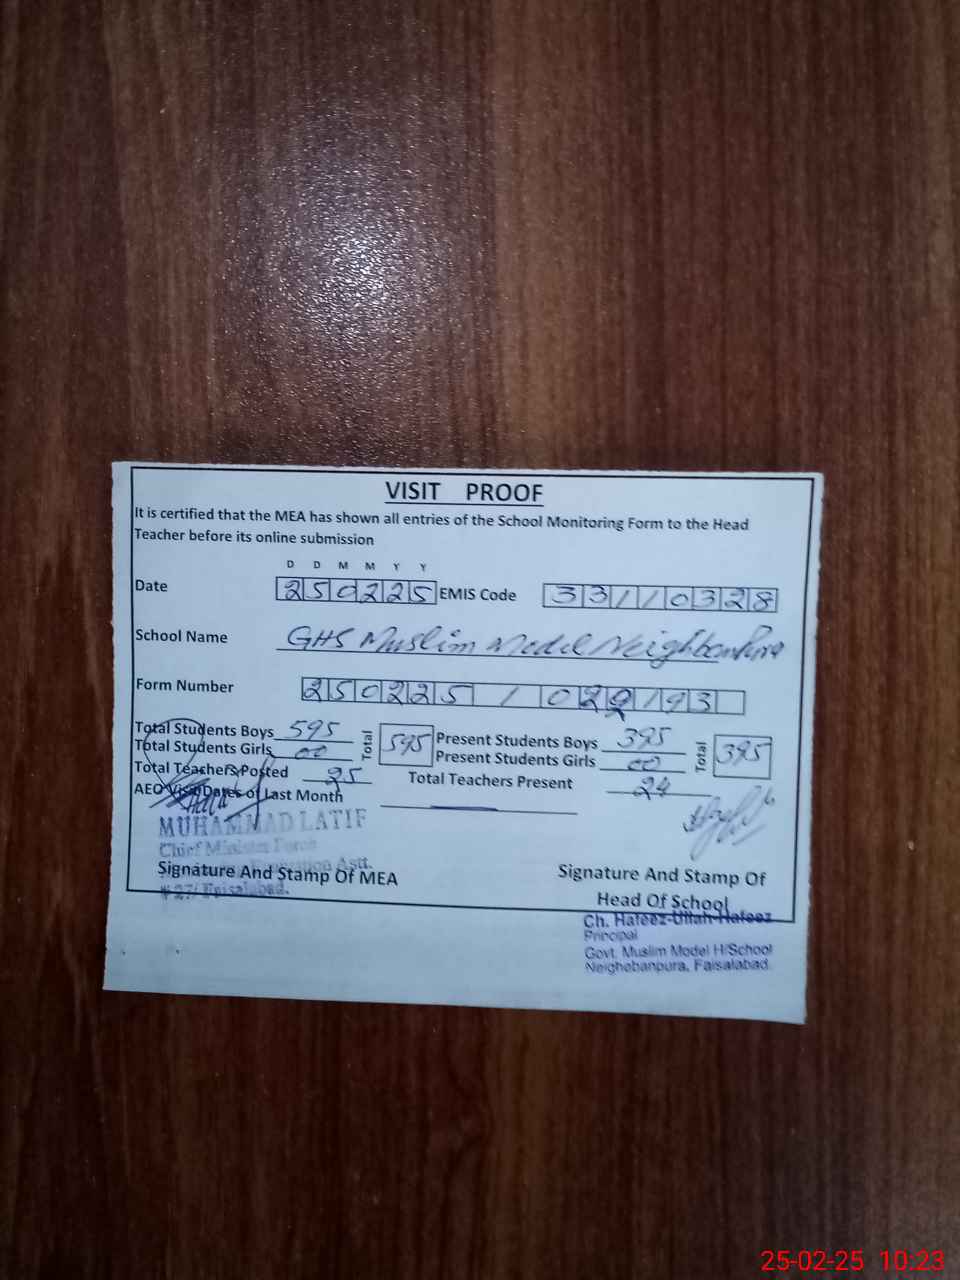 VISIT PROOF
It is certified that the MEA has shown all entries of the School Monitoring Form to the Head
Teacher before its online submission
D D M M Y Y
Date 250225 EMIS Code 33110328
School Name GHS Muslim Model
Form Number 250225 / 0 193
Total Students Boys 595 Total 595 Present Students Boys 395 Total 395
Total Students Girls 00 Present Students Girls 00
Total Teachers Posted 25 Total Teachers Present 24
AEO Visit Dates of Last Month
MUHAMMAD LATIF
Chief
Astt.
Signature And Stamp Of MEA Signature And Stamp Of
Faisalabad. Head Of School
Ch. Hafeez-Ullah-Hafeez
Principal
Govt. Muslim Model H/School
Neighebanpura, Faisalabad.
25-02-25 10:23